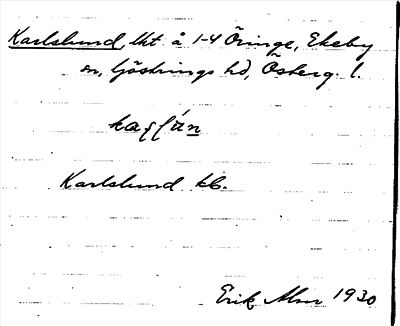 Karlslund, lht å 1-4 Öringe, Ekeby
sn, Göstrings hd, Österg. l.
Karlslund kb.
Erik Abm 1930